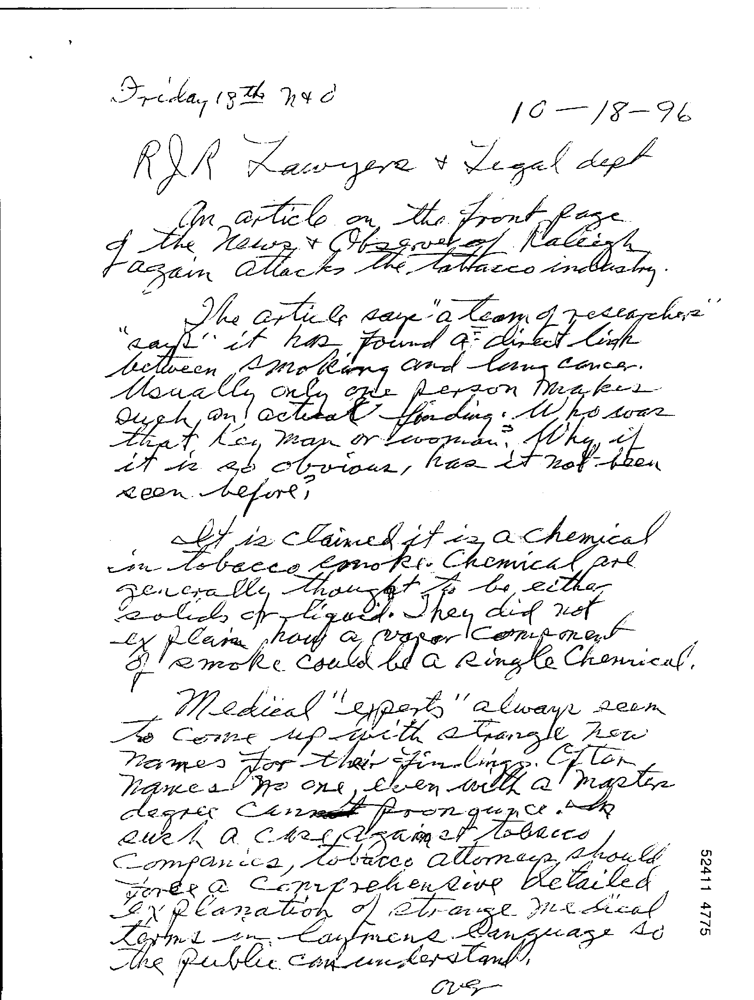 Friday 18th N & O
10-18-96
RJR Lawyers & Legal dept
An article on the front page
of the News & Observer of Raleigh
again attacks the tobacco industry.
The article says "a team of researchers"
"says" it has found a "direct link
between smoking and lung cancer.
Usually only one person makes
such an actual finding. Who was
that key man or woman? Why, if
it is so obvious, has it not been
seen before?
It is claimed it is a chemical
in tobacco smoke. Chemical are
generally thought to be either
solids or liquid. They did not
explain how a vapor component
of smoke could be a single Chemical.
Medical "experts" always seem
to come up with strange new
names for their findings. Often
names no one, even with a masters
degree cannot pronounce. In
such a case against tobacco
companies, tobacco attorneys should
force a comprehensive detailed
explanation of strange medical
terms in laymens language so
the public can understand.
over
52411 4775